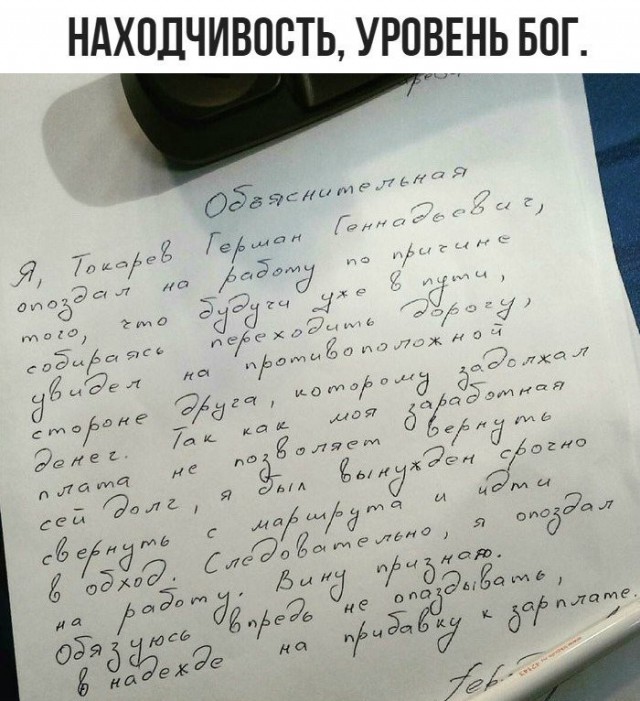 НАХОДЧИВОСТЬ, УРОВЕНЬ БОГ.
Объяснительная
Я, Токарев Герман Геннадьевич,
опоздал на работу по причине
того, что будучи уже в пути,
собираясь переходить дорогу,
увидел на противоположной
стороне друга, которому задолжал
денег. Так как моя заработная
плата не позволяет вернуть
сей долг, я был вынужден срочно
свернуть с маршрута и идти
в обход. Следовательно, я опоздал
на работу. Вину признаю.
Обязуюсь впредь не опаздывать,
в надежде на прибавку к зарплате.